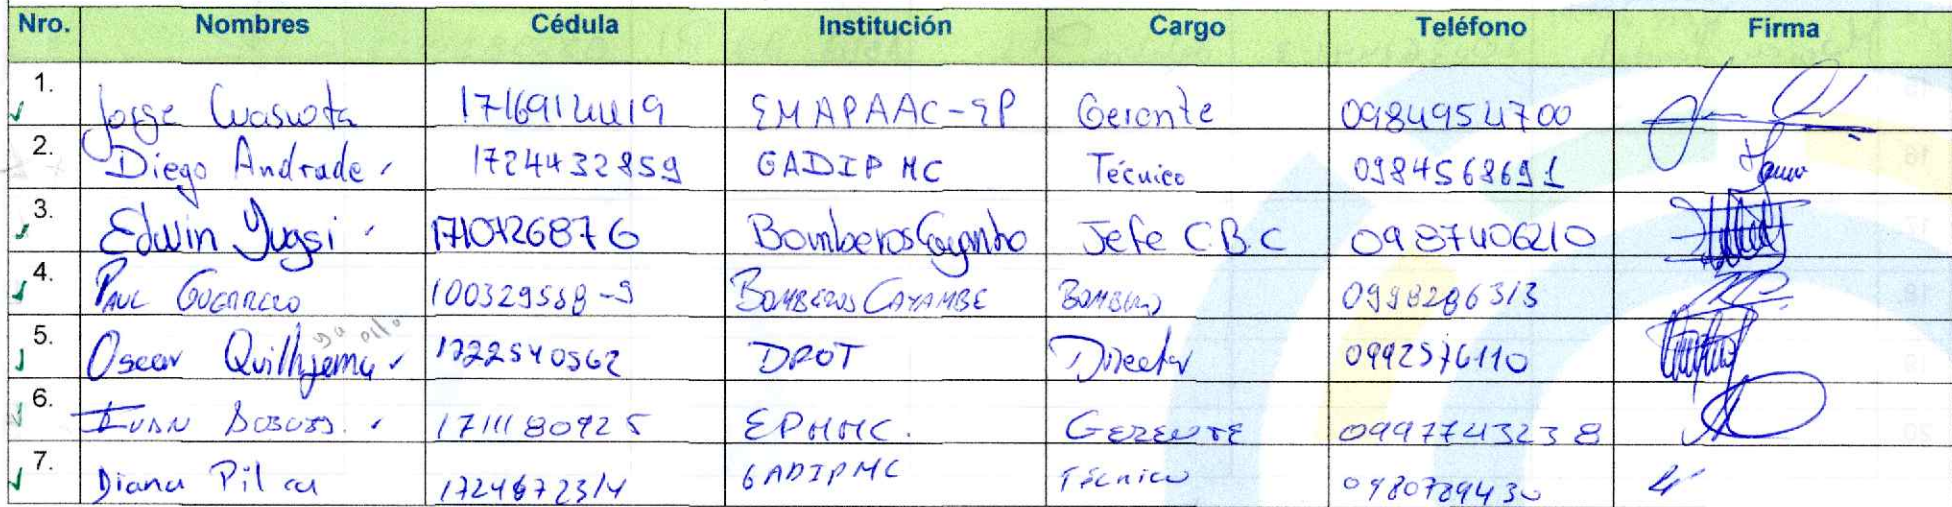 Nro. Nombres Cédula Institución Cargo Teléfono Firma
1. Jorge Cuascota 1716914419 EMAPAAC-EP Gerente 0984954700
2. Diego Andrade 1724432859 GADIP MC Técnico 0984568691
3. Edwin Yugsi 1710726876 Bomberos Cayambe Jefe C.B.C 0987406210
4. Paul Guerrero 100329558-9 Bomberos Cayambe Bombero 0998286313
5. Oscar Quilhyema 1722540562 DPOT Director 0992576110
6. Iván 1711180925 EPMMC. Gerente 0997743238
7. Diana Pilca 1724672314 GADIPMC Técnico 0980789430